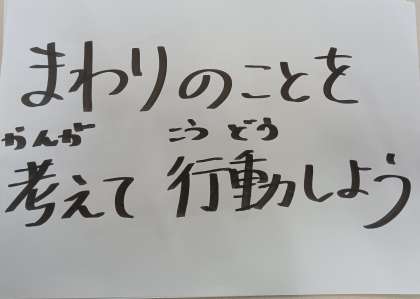 まわりのことを
かんが こうどう
考えて 行動しよう